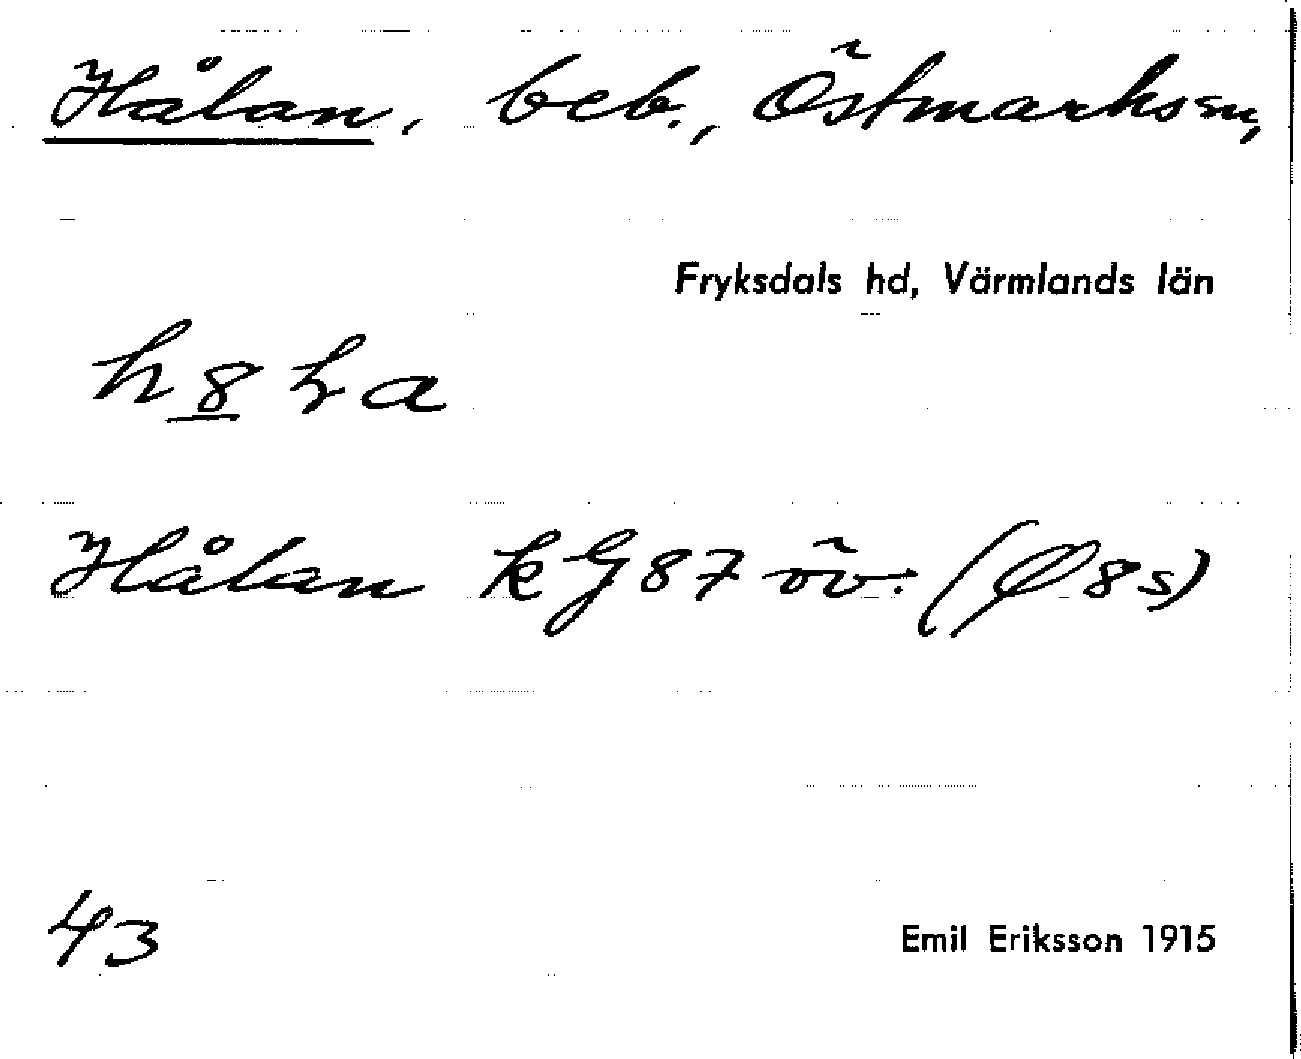 Hålan, beb., Östmarks sn,
Fryksdals hd, Värmlands län
Hålan kG87 öv. (Ø8s)
43
Emil Eriksson 1915